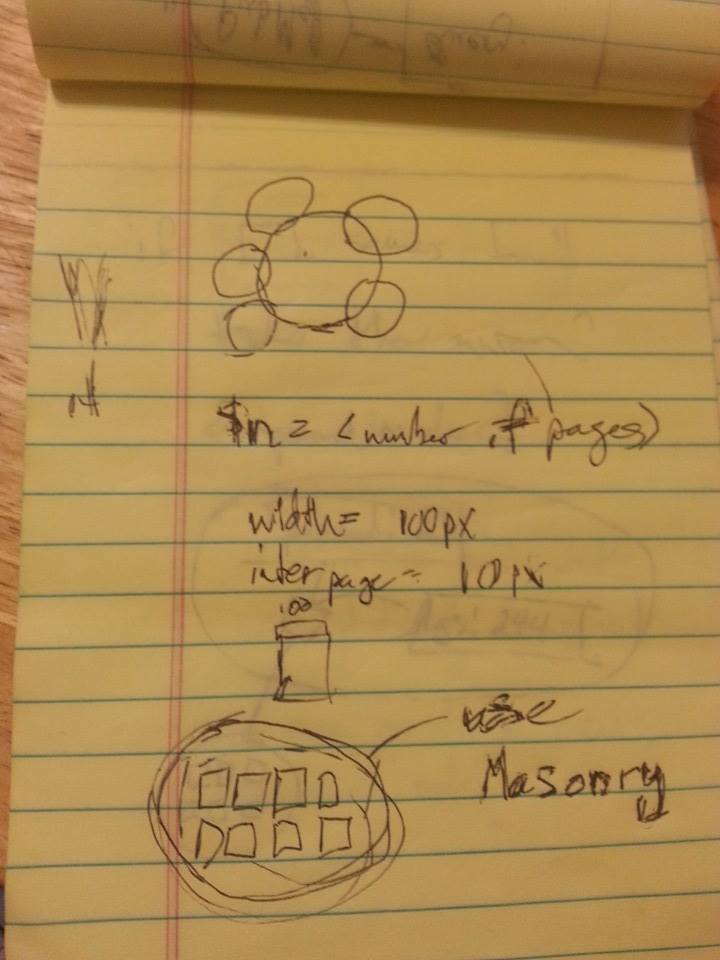 $n = <number of pages>
width = 100px
interpage = 10px
100
use
Masonry